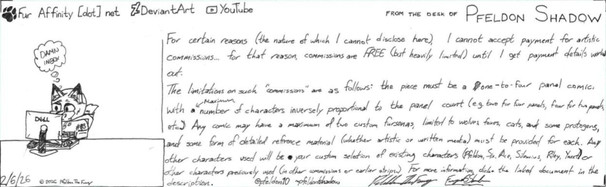 Fur Affinity [dot] net DeviantArt YouTube
FROM THE DESK OF PFELDON SHADOW
DAMN INBOX
DELL
For certain reasons (the nature of which I cannot disclose here), I cannot accept payment for artistic
commissions... for that reason, commissions are FREE (but heavily limited) until I get payment details worked
out.
The limitations on such "commissions" are as follows: the piece must be a one-to-four panel comic.
With a Maximum number of characters inversely proportional to the panel count (e.g. two for four panels, four for two panels,
etc.) Any comic may have a maximum of two custom fursonas, limited to wolves, foxes, cats, and some protogens,
and some form of detailed reference material (whether artistic or written media) must be provided for each. Any
other characters used will be your custom selection of existing characters (Pfeldon,
other characters previously used in other commissions or earlier strips). For more information, data the linked document in the
description.
2/6/26